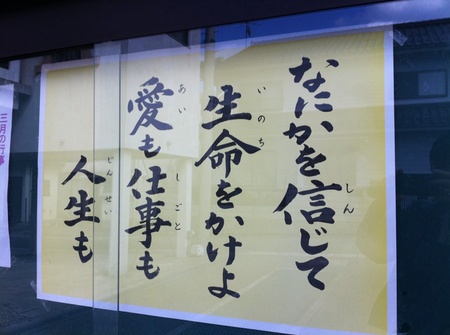 なにかを信じて
しん
生命をかけよ
いのち
愛も仕事も
あい しごと
人生も
じんせい
三月の行事